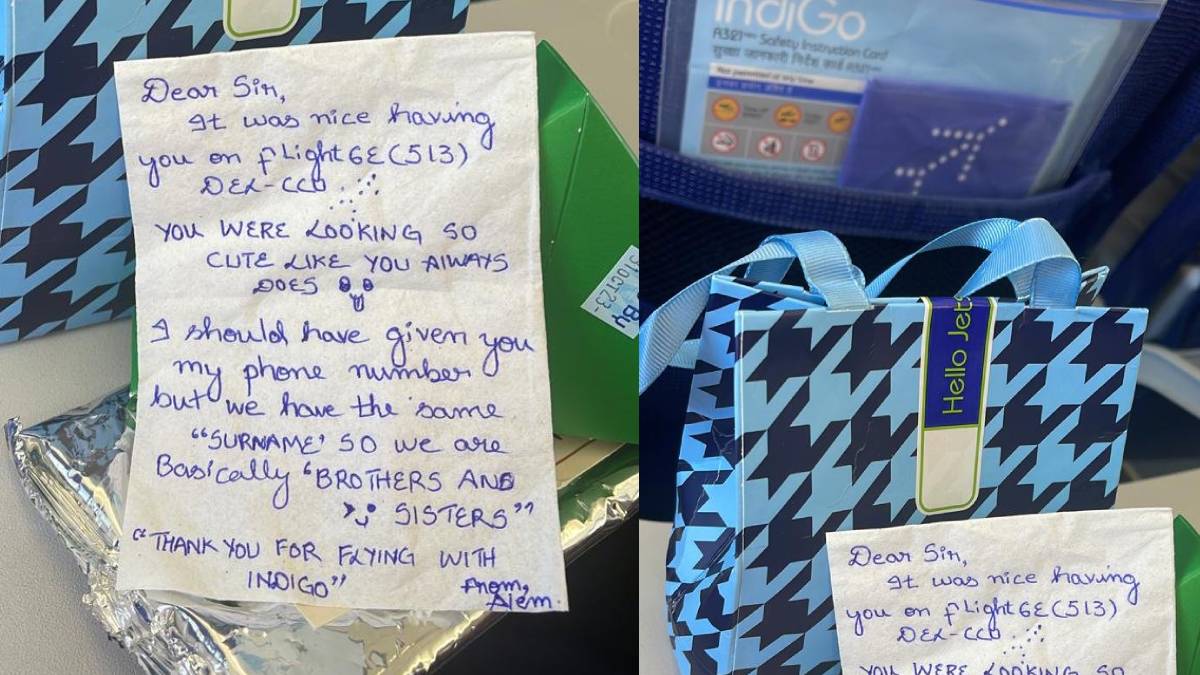 Dear Sir,
It was nice having
you on flight 6E(513)
DEL-CCU
YOU WERE LOOKING SO
CUTE LIKE YOU AlWAYS
DOES
I should have given you
my phone number
but we have the same
"SURNAME' SO we are
Basically 'BROTHERS AND
SISTERS"
"THANK YOU FOR FLYING WITH
INDIGO"
From,
Alem.
31OCT23-
BY
IndiGo
A321neo Safety Instruction Card
सुरक्षा जानकारी निर्देश कार्ड
Hello Jets
Dear Sir,
It was nice having
you on flight 6E(513)
DEL-CCU
YOU WERE LOOKING SO